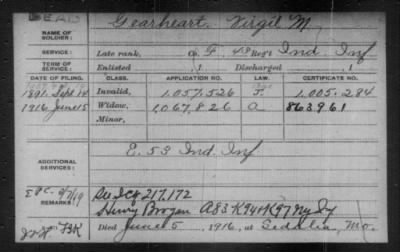 DEAD
NAME OF SOLDIER: Gearheart, Virgil M.
SERVICE: Late rank, Co. F, 43 Reg't Ind. Inf
TERM OF SERVICE: Enlisted , 1 Discharged , 1
DATE OF FILING. CLASS. APPLICATION NO. LAW. CERTIFICATE NO.
1891, Sept 14 Invalid, 1,057,526 1,005,284
1916, June 15 Widow, 1,067,826 a 863,961
Minor,
ADDITIONAL SERVICES: E. 53 Ind. Inf
REMARKS: 217,172
Died June 5, 1916, at Sedalia, Mo.